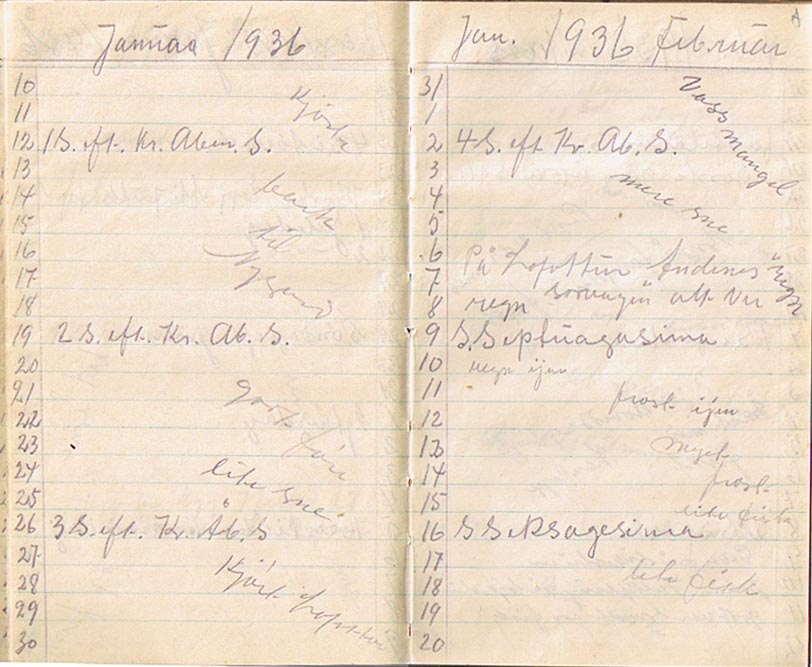 Januar 1936
10
11 Kjørte
12 1 S. eft. Kr. Åben. S.
13
14
15 til
16
17
18
19 2 S. eft. Kr. Ab. S.
20
21 gott
22 føre
23
24 lite sne.
25
26 3 S. eft. Kr. Åb. S
27
28 Kjørt
29
30
Jan. 1936 Februar
31 Vass
1 mangel
2 4 S. eft Kr. Ab. S.
3
4 mere sne
5
6
7 På Lofottur Andenes
8 regn alt
9 S. Septuagesima
10 regn ijen
11
12 frost ijen
13 myck
14 frost
15 lite fisk
16 S Seksagesima
17
18 lite fisk
19
20